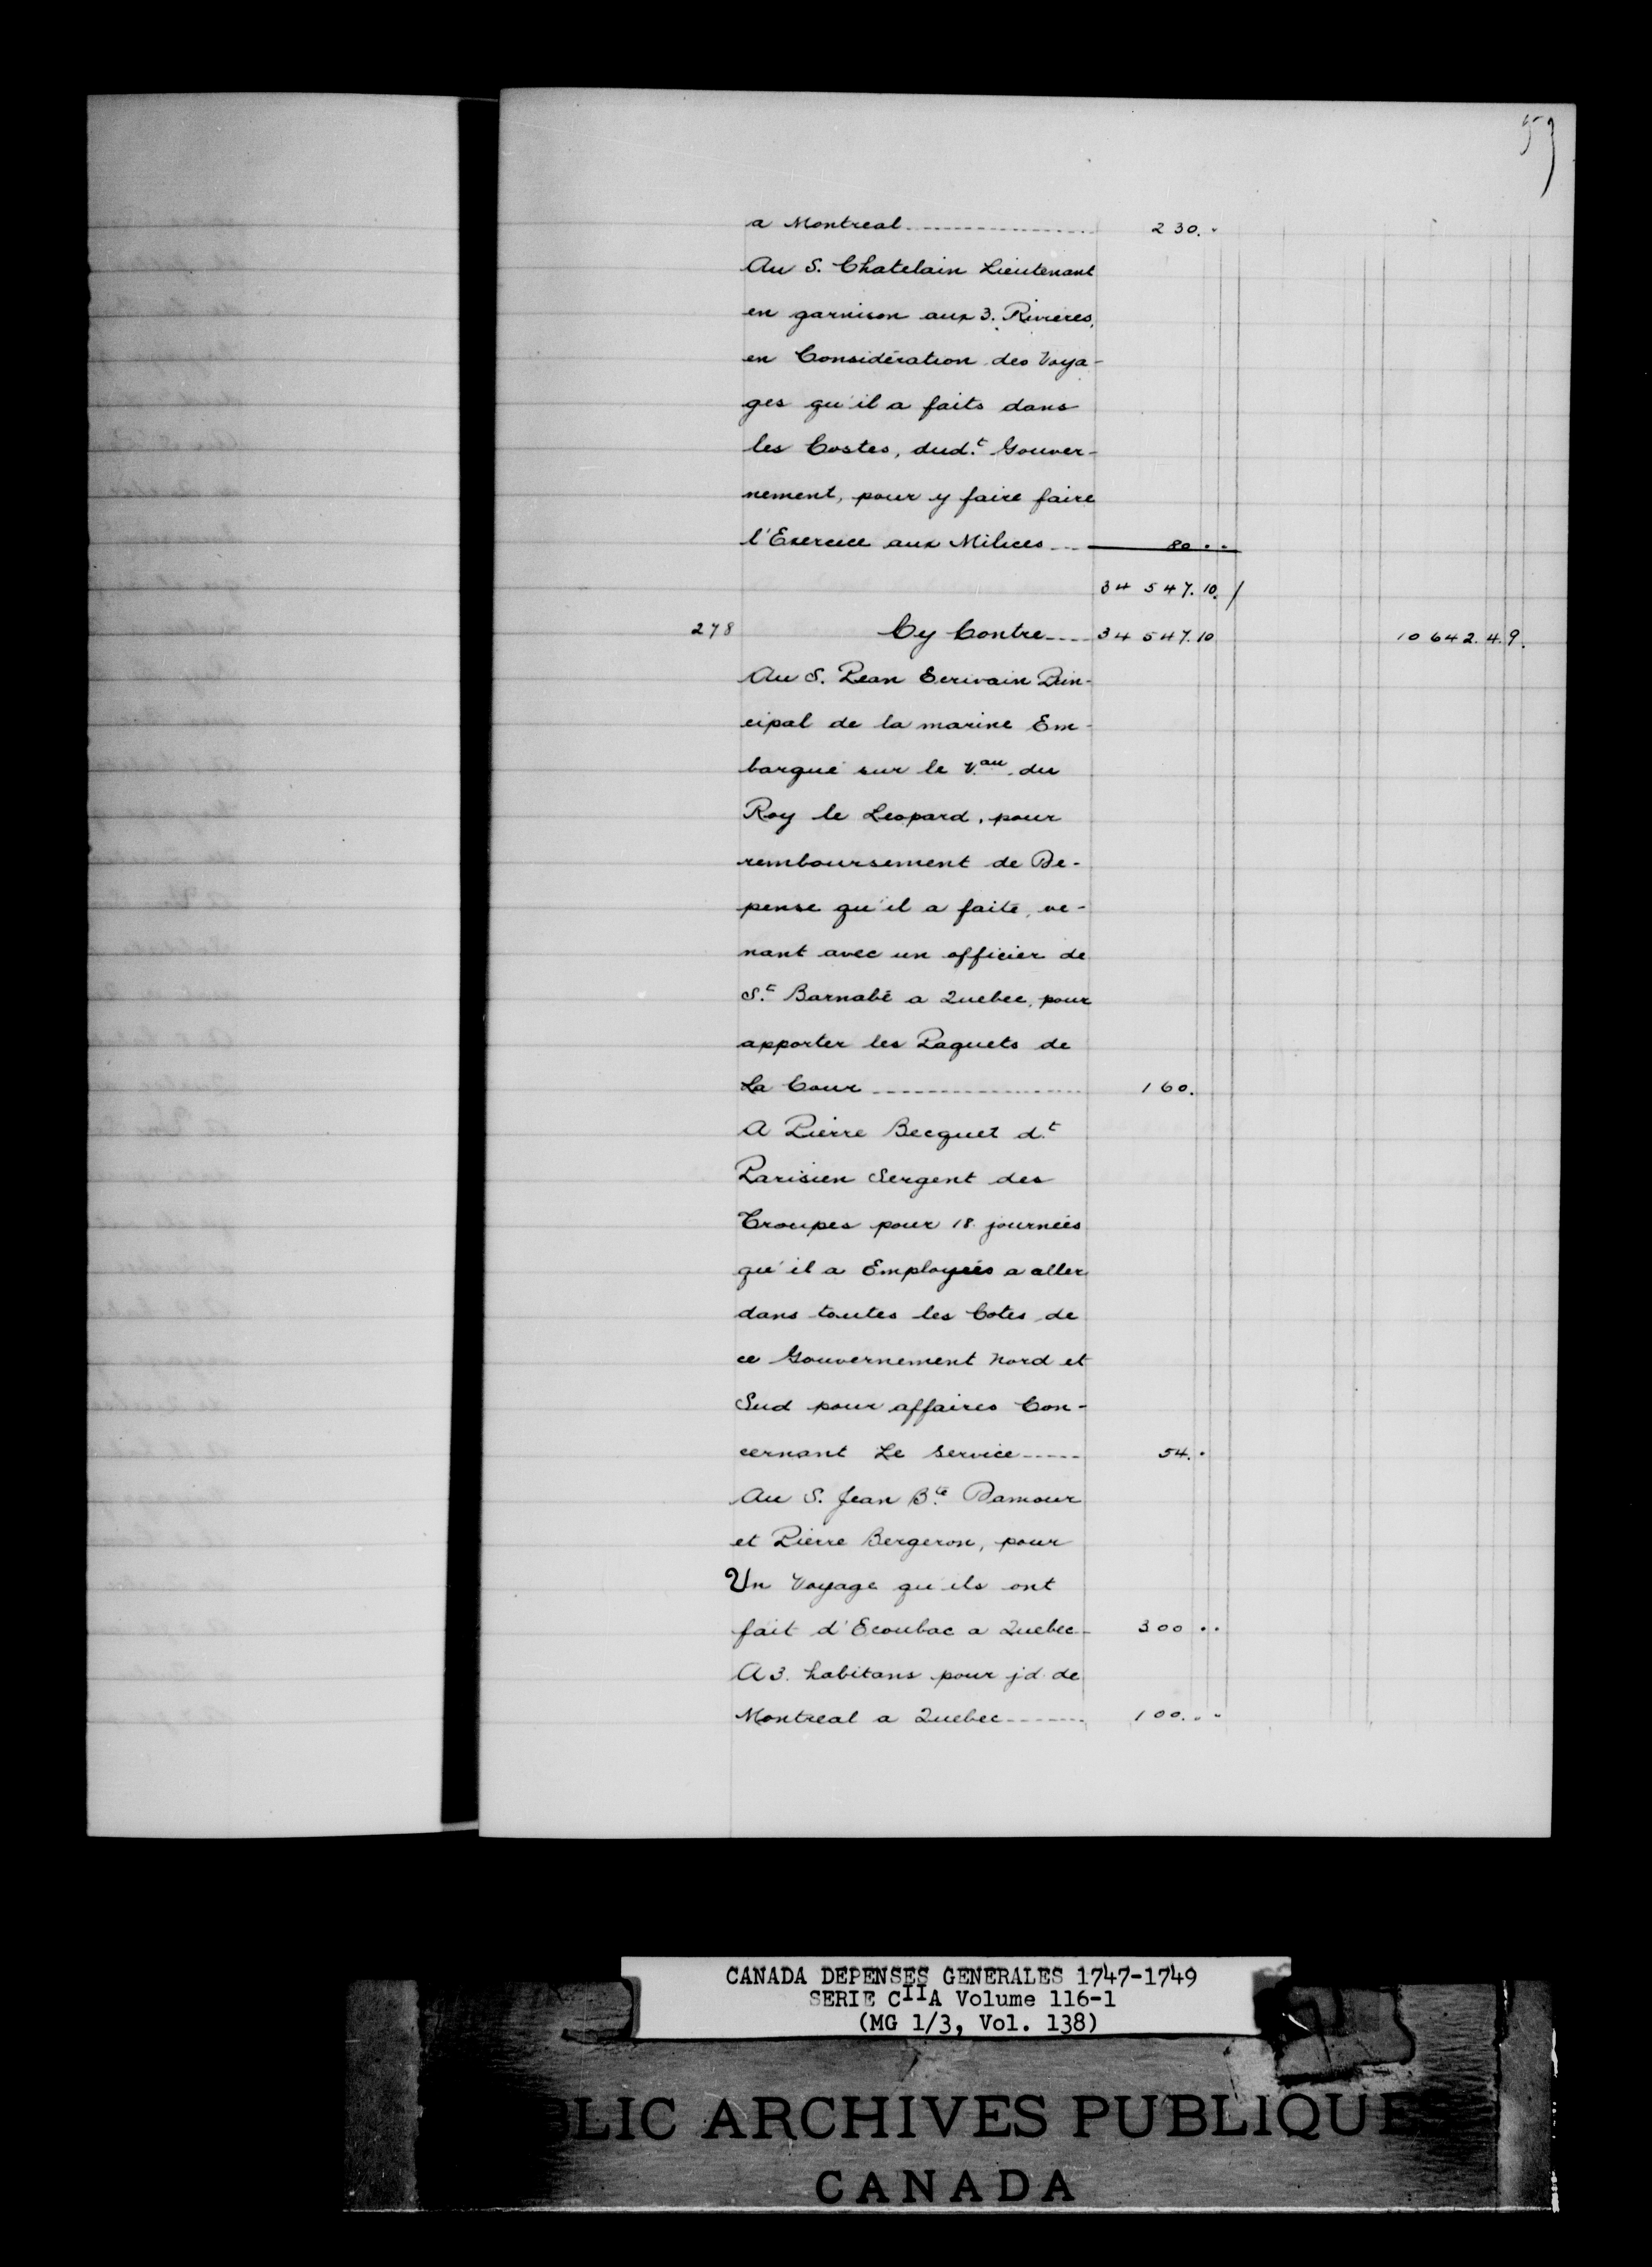 53
a Montreal 230..
Au S. Chatelain Lieutenant
en garnison aux 3. Rivieres,
en Considération des Voya-
ges qu'il a faits dans
les Costes, dud.t Gouver-
nement, pour y faire faire
l'Exercice aux Milices 80..
34 547. 10. /
278 Cy Contre 34 547. 10 10 642. 4. 9.
Au S. Pean Ecrivain Prin-
cipal de la marine Em-
barqué sur le V.au du
Roy le Leopard, pour
remboursement de De-
pense qu'il a faite, ve-
nant avec un officier de
S.t Barnabé a Quebec, pour
apporter les Paquets de
La Cour 160.
A Pierre Becquet d.t
Parisien Sergent des
Troupes pour 18 journées
qu'il a Employées a aller
dans toutes les Cotes de
ce Gouvernement Nord et
Sud pour affaires Con-
cernant Le Service 54..
Au S. Jean B.te Damour
et Pierre Bergeron, pour
Un Voyage qu'ils ont
fait d'Ecoubac a Quebec 300..
A 3. habitans pour jd. de
Montreal a Quebec 100...
CANADA DEPENSES GENERALES 1747-1749
SERIE CIIA Volume 116-1
(MG 1/3, Vol. 138)
BLIC ARCHIVES PUBLIQUE
CANADA